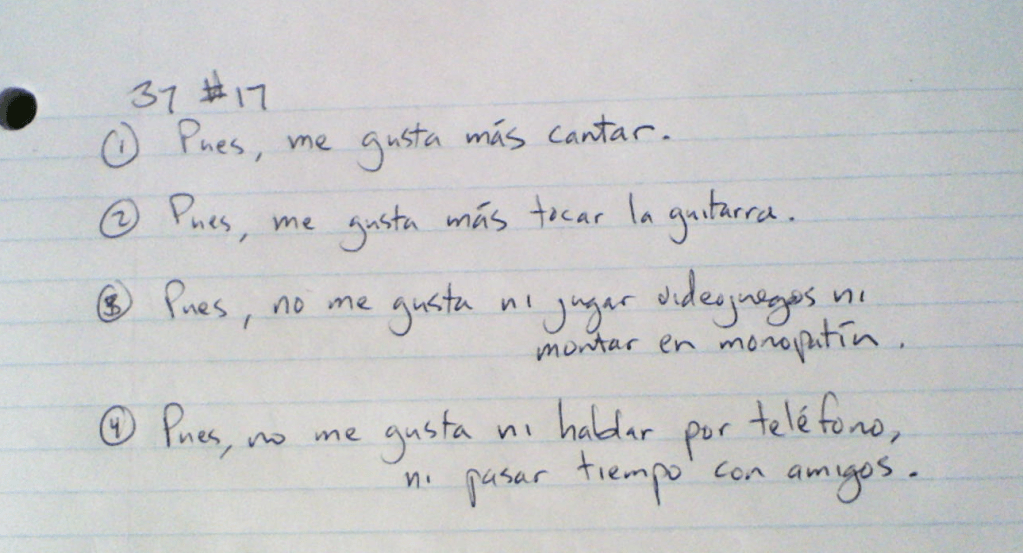 37 #17
① Pues, me gusta más cantar.
② Pues, me gusta más tocar la guitarra.
③ Pues, no me gusta ni jugar videojuegos ni
montar en monopatín.
④ Pues, no me gusta ni hablar por teléfono,
ni pasar tiempo con amigos.